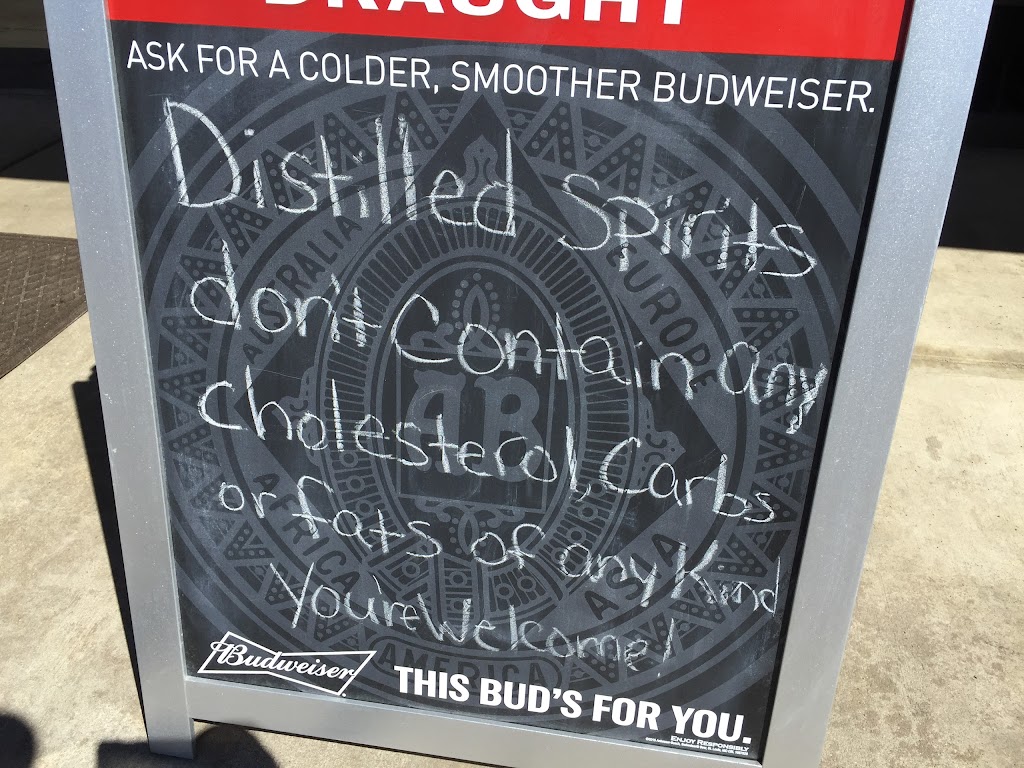 DRAUGHT
ASK FOR A COLDER, SMOOTHER BUDWEISER.
Distilled Spirits
don't Contain any
cholesterol, carbs
or fats of any Kind
You're Welcome!
AUSTRALIA
EUROPE
AB
AFRICA
ASIA
AMERICA
Budweiser
THIS BUD'S FOR YOU.
ENJOY RESPONSIBLY